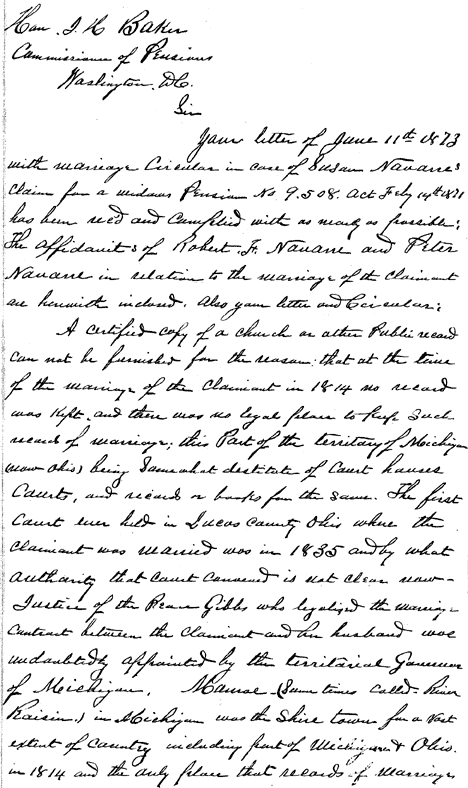 Hon. J. H. Baker
Commissioner of Pensions
Washington D.C.
Sir
Your letter of June 11th 1873
with marriage Circular in case of Susan Navarre's
claim for a widows Pension No 9.508. Act Feby 14th 1871
has been recd and complied with as nearly as possible;
The affidavits of Robert F. Navarre and Peter
Navarre in relation to the marriage of the claimant
are herewith inclosed. Also your letter and Circular;
A certified copy of a church or other Public record
can not be furnished for the reason: that at the time
of the marriage of the Claimant in 1814 no record
was Kept, and there was no legal place to Keep Such
record of marriage; this Part of the territory of Michigan
(now Ohio) being Somewhat destitute of Court houses
Courts, and records or books for the Same. The first
Court ever held in Lucas County Ohio where the
Claimant was married was in 1835 and by what
authority that Court convened is not clear now-
Justice of the Peace Gibbs who legalized the marriage
contract between the Claimant and her husband was
undoubtedly appointed by the then territorial Governor
of Michigan. Monroe (Some times called River
Raisin,) in Michigan was the Shire town for a vast
extent of Country including part of Michigan & Ohio.
in 1814 and the only place that records of Marriage